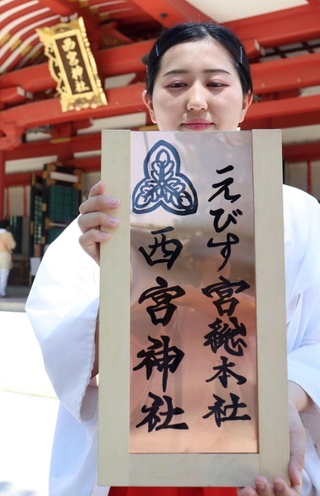 西宮神社
えびす宮総本社
西宮神社